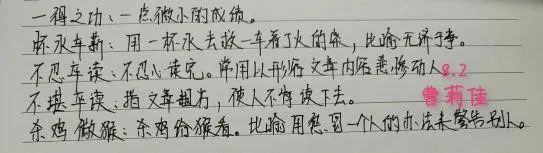 一得之功：一点微小的成绩。
杯水车薪：用一杯水去救一车着了火的柴，比喻无济于事。
不忍卒读：不忍心读完。常用以形容文章内容悲惨动人。
8.2
不堪卒读：指文章粗劣，使人不得读下去。
曹莉佳
杀鸡儆猴：杀鸡给猴看。比喻用惩罚一个人的办法来警告别人。